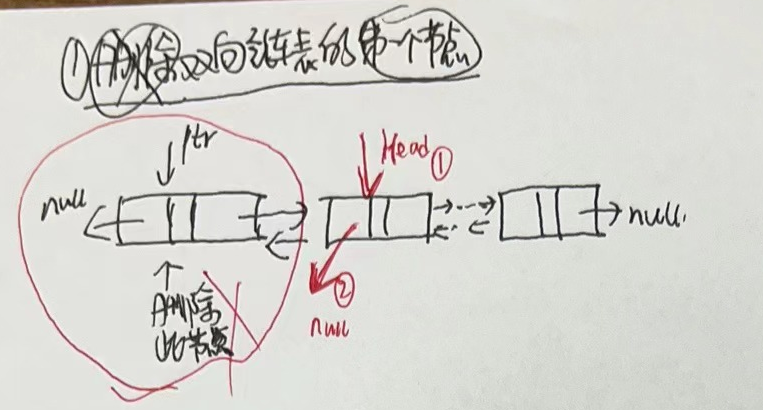 ①删除双向链表的第一个节点
ptr
Head①
null
null.
↑
删除
此节点
②
null